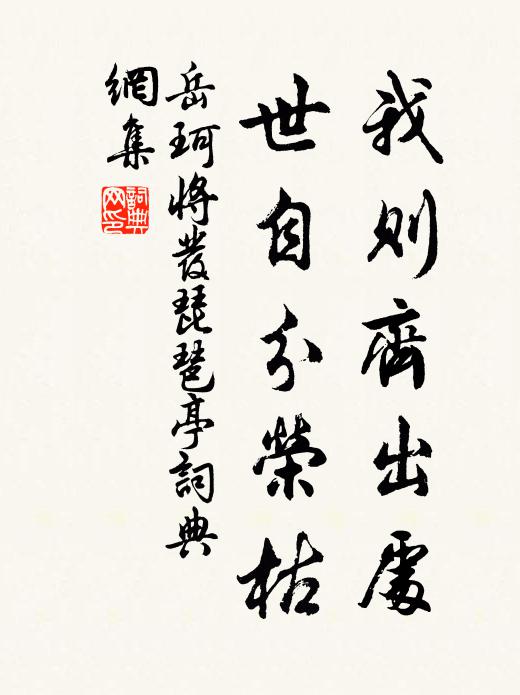 我則齊出處
世自分榮枯
岳珂將發琵琶亭詞典
網集
詞典網印